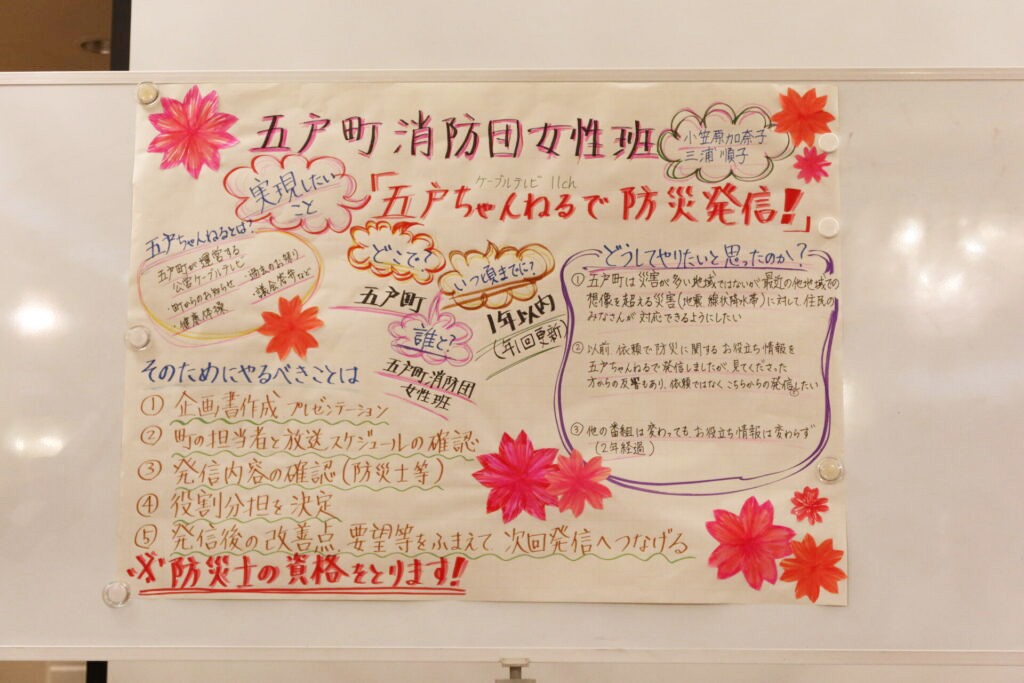 五戸町消防団女性班
小笠原加奈子
三浦順子
実現したい
こと
ケーブルテレビ 11ch
「五戸ちゃんねるで防災発信!」
五戸ちゃんねるとは?
五戸町が運営する
公営ケーブルテレビ
・町からのお知らせ
・健康体操
・過去のお祭り
・議会答弁など
どこで?
五戸町
いつ頃までに?
1年以内
(年1回更新)
誰と?
五戸町消防団
女性班
どうしてやりたいと思ったのか?
① 五戸町は災害が多い地域ではないが最近の他地域での
想像を超える災害(地震 線状降水帯)に対して、住民の
みなさんが対応できるようにしたい
② 以前、依頼で防災に関するお役立ち情報を
五戸ちゃんねるで発信しましたが、見てくださった
方からの反響もあり、依頼ではなくこちらからの発信したい
③ 他の番組は変わってもお役立ち情報は変わらず
(2年経過)
そのためにやるべきことは
① 企画書作成 プレゼンテーション
② 町の担当者と放送スケジュールの確認
③ 発信内容の確認(防災士等)
④ 役割分担を決定
⑤ 発信後の改善点、要望等をふまえて、次回発信へつなげる
※防災士の資格をとります!